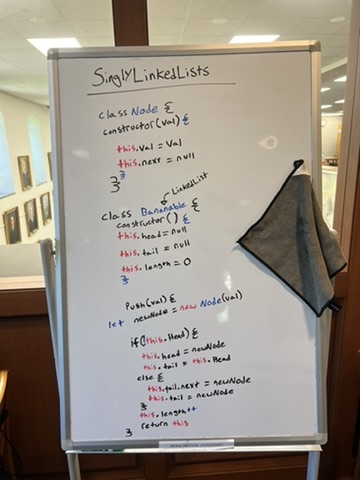 SinglyLinkedLists
class Node {
constructor(val) {
this.val = val
this.next = null
}
}
LinkedList
class Bananable {
constructor() {
this.head = null
this.tail = null
this.length = 0
}
Push(val) {
let newNode = new Node(val)
if(!this.Head) {
this.head = newNode
this.tail = this.Head
else {
this.tail.next = newNode
this.tail = newNode
}
this.length++
return this
}